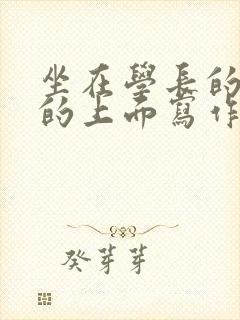 坐在學長的
的上面寫作
癸芽芽